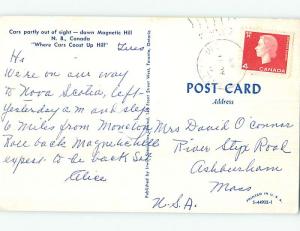 Cars partly out of sight — down Magnetic Hill
N. B., Canada
"Where Cars Coast Up Hill"
Tues
Hi
We're on our way
to Nova Scotia, left
yesterday am and stop
6 miles from Moncton
Rode back Magnetic hill
expect to be back Sat
Alice
CANADA
4
POST CARD
Address
Mrs David O'Connor
River Styx Road
Ashburnham
Mass
U.S.A.
PRINTED IN U.S.A.